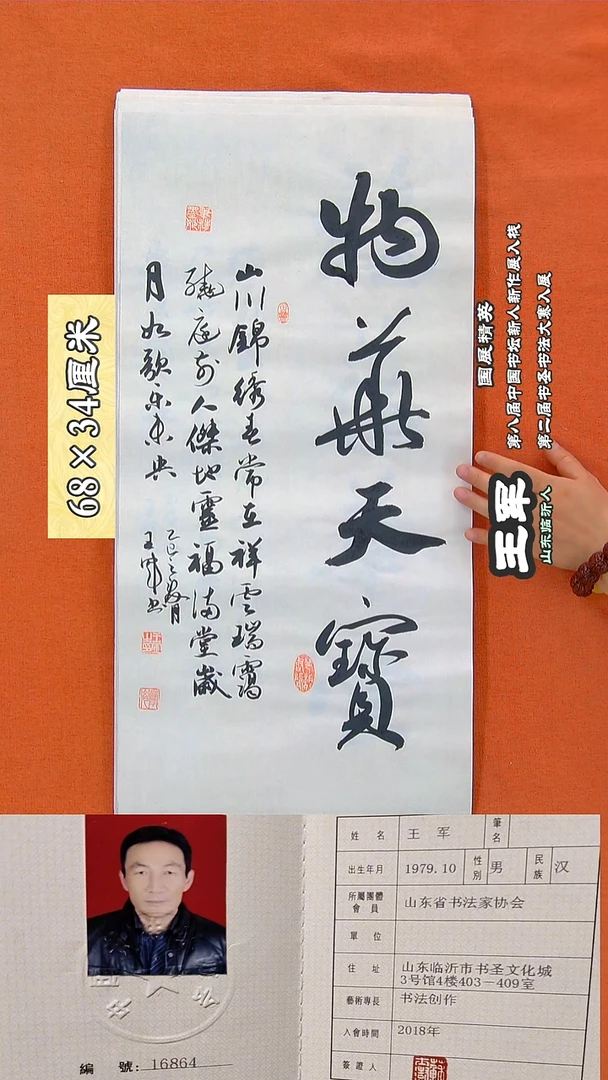 物華天寶
山川錦綉春常在祥雲瑞靄
繞庭前人傑地靈福滿堂歲
月如歌樂未央
乙巳之春月
王軍书
68×34厘米
国展精英
第八届中国书坛新人新作展入展
第二届书圣书法大赛入展
王军
山东临沂人
姓名 王军 筆名
出生年月 1979.10 性別 男 民族 汉
所屬團體會員 山东省书法家协会
單位
住址 山东临沂市书圣文化城
3号馆4楼403－409室
藝術專長 书法创作
入會時間 2018年
簽證人
編號：16864